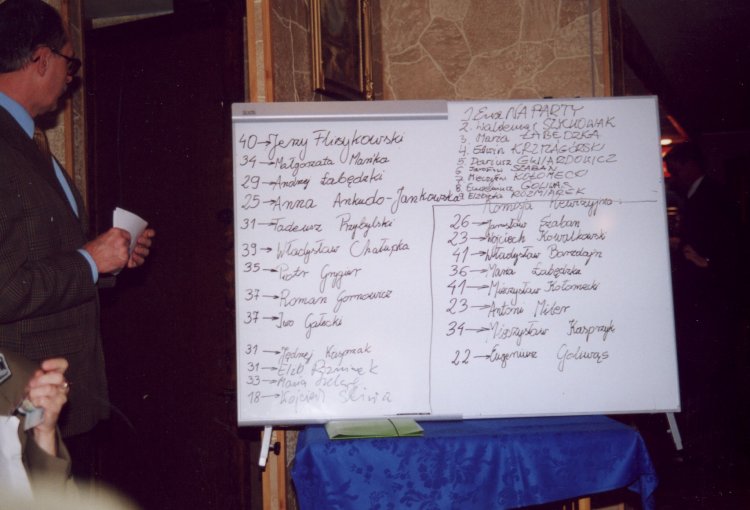 40→Jerzy Flisykowski
34→Małgorzata Mańka
29→Andrzej Łabędzki
25→Anna Ankudo-Jankowska
31→Tadeusz Przybylski
39→Władysław Chałupka
35→Piotr Grygier
37→Roman Gornowicz
37→Iwo Gałecki
31→Jędrzej Kasprzak
31→Elżb
33→Maria
18→Wojciech
1. Ewa NAPARTY
2. Waldemar SZYCHOWIAK
3. Maria ŁABĘDZKA
4. Edwin KRZYŻAGÓRSKI
5. Dariusz GWIAZDOWICZ
6. Jarosław SZABAN
7. Mieczysław KOŁOMECKI
8. Eugeniusz GOLWĄS
9. Elżbieta ROZMIAREK
Komisja Rewizyjna:
26→Jarosław Szaban
23→Wojciech Kowalkowski
41→Władysław Barzdajn
36→Maria Łabędzka
41→Mieczysław Kołomecki
23→Antoni Miler
34→Mieczysław Kasprzyk
22→Eugeniusz Golwąs